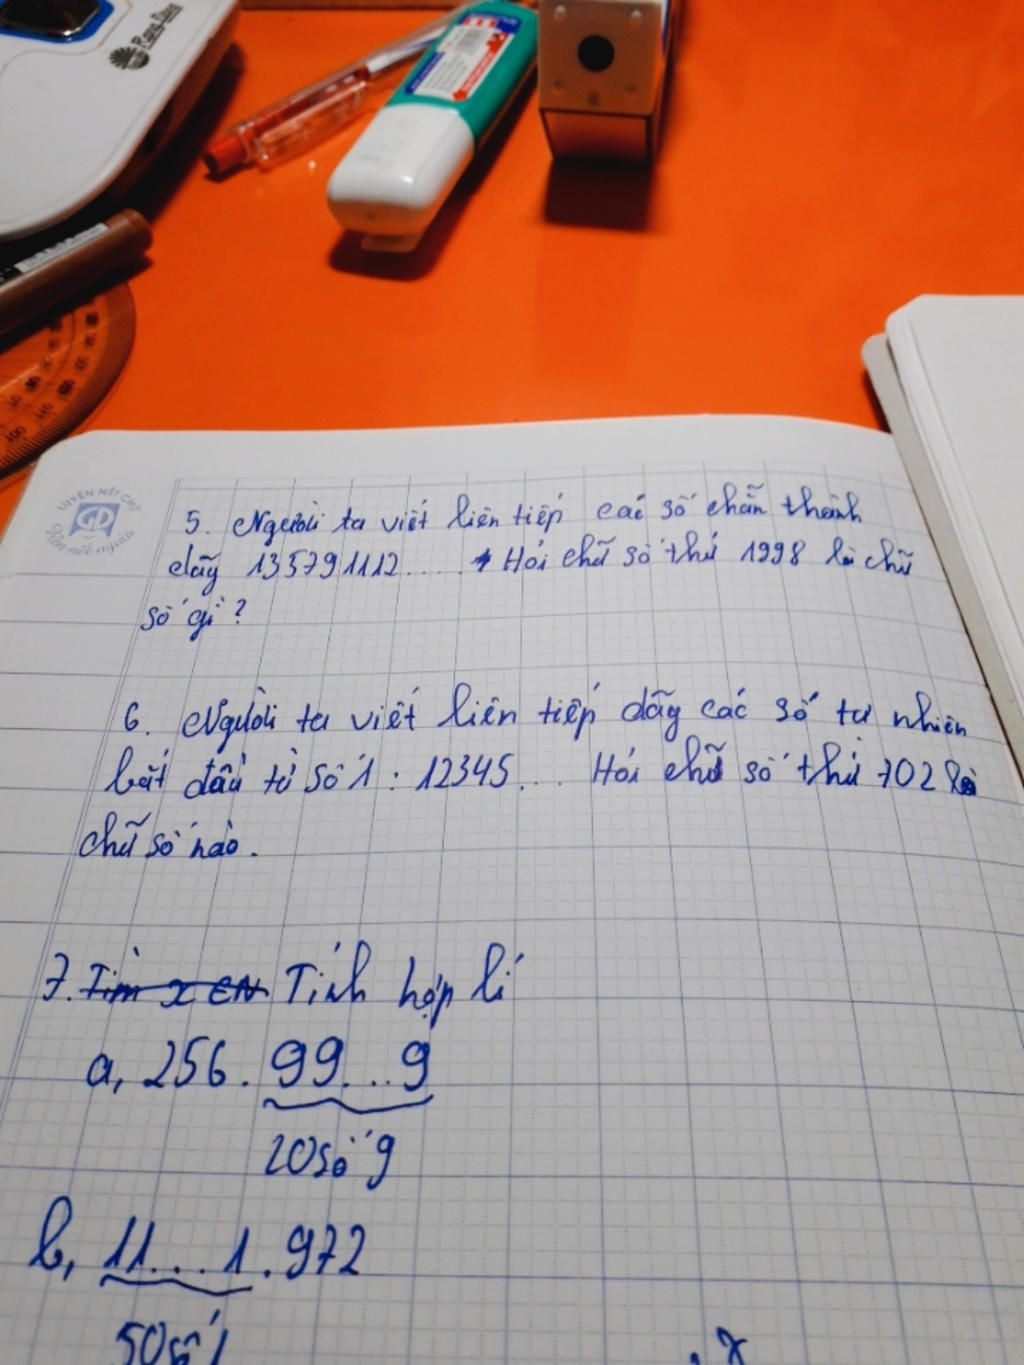 5. Người ta viết liên tiếp các số chẵn thành
dãy 135791112..... Hỏi chữ số thứ 1998 là chữ
số gì?
6. Người ta viết liên tiếp dãy các số tự nhiên
bắt đầu từ số 1 : 12345... Hỏi chữ số thứ 702 là
chữ số nào.
7. Tìm x ∈ N Tính hợp lí
a, 256. 99...9
20 số 9
b, 11...1.972
50 số 1